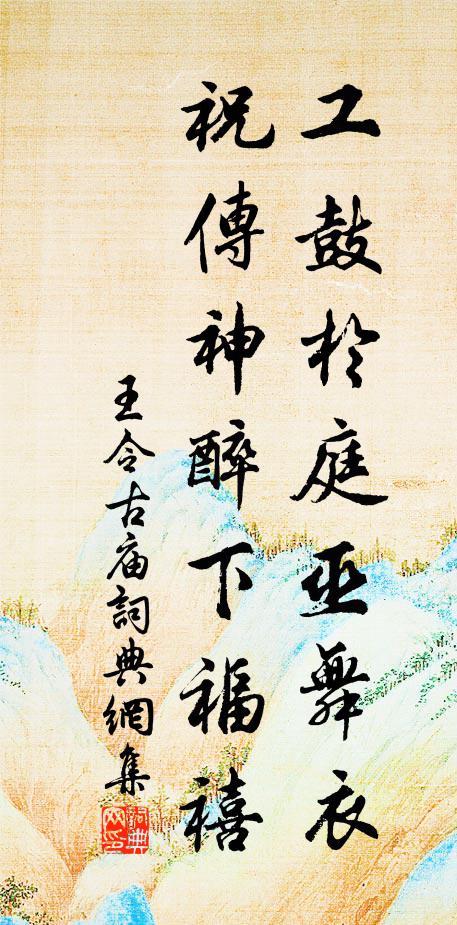 工鼓於庭巫舞衣
祝傳神醉下福禧
王令古庙詞典網集
詞典網印